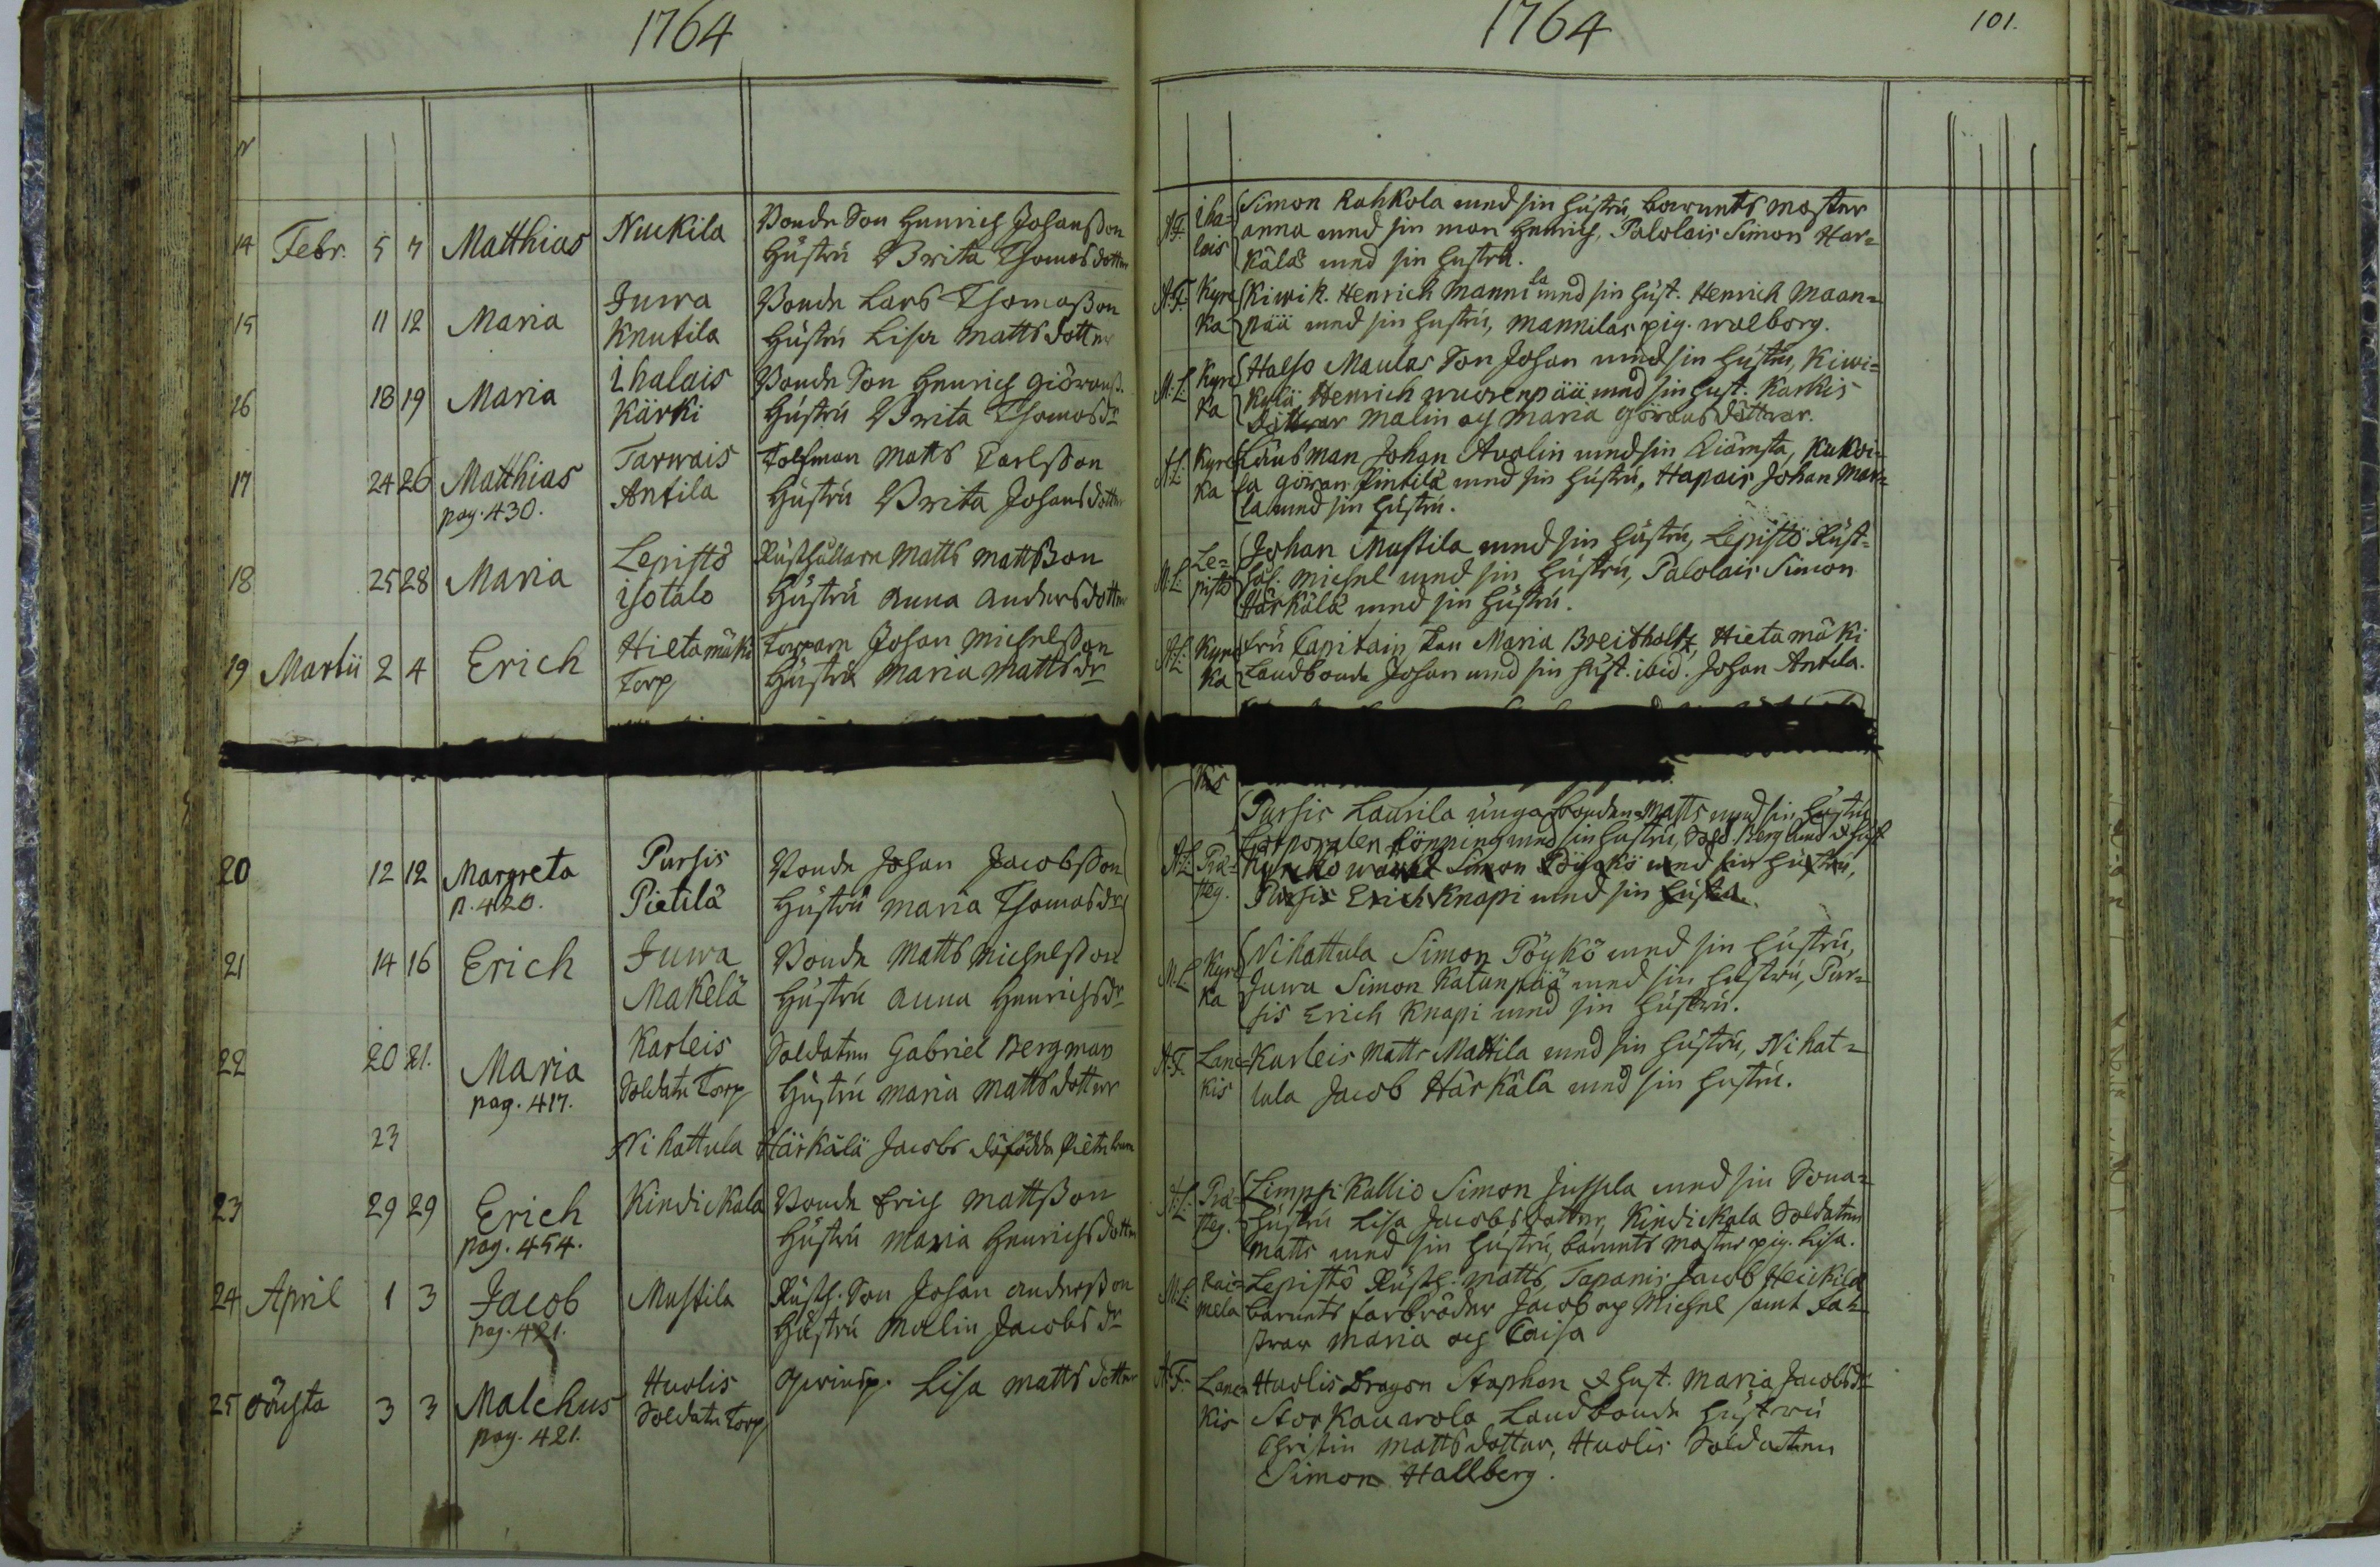 1764
14 Febr. 5 7 Matthias Nuukila Bonde Son Henrich Johansson
Hustru Brita Thomasdotter
15 11 12 Maria Juwa Knutila Bonde Lars Thomasson
Hustru Lisa Mattsdotter
16 18 19 Maria Ihalais Kärki Bonde Son Henrich Giöranss.
Hustru Brita Thomasdr
17 24 26 Matthias Tarwais Antila Tolfman Matts Carlsson
pag. 430. Hustru Brita Johansdotter
18 25 28 Maria Lepistö Isotalo Rusthållare Matts Mattsson
Hustru Anna Andersdotter
19 Martii 2 4 Erich Hietamäki Torp Torpare Johan Michelsson
Hustru Maria Mattsdr
20 12 12 Margreta Pursis Pietilä Bonde Johan Jacobsson
p. 420. Hustru Maria Thomasdr
21 14 16 Erich Juwa Makelä Bonde Matts Michelsson
Hustru Anna Henrichsdr
22 20 21. Maria Karleis Soldate Torp Soldaten Gabriel Bergman
pag. 417. Hustru Maria Mattsdotter
23 Nihattula Härkälä Jacobs dödfödda
23 29 29 Erich Kindickala Bonde Erich Mattsson
pag. 454. Hustru Maria Henrichsdotter
24 April 1 3 Jacob Mustila Rusth. Son Johan Andersson
pag. 421. Hustru Malin Jacobsdr
25 3 3 Malchus Huolis Soldate Torp Lisa Mattsdotter
pag. 421.
1764
101.
A.F. Iha=
lais Simon Rahkola med sin hustru, barnets moster
Anna med sin man Henrich, Palolais Simon Här=
kälä med sin hustru.
A.F. Kyrc
ka Kiwik. Henrich Mannila med sin hust. Henrich Maan=
pää med sin hustru, Mannilas pig. Walborg.
M.L. Kyrc
ka Halso Maulas Son Johan med sin hustru, Kiwi=
kylä Henrich med sin hust. Karkis
döttrar Malin och Maria Görans döttrar.
A.L. Kyrc
ka Länsman Johan Avolin med sin
la Göran Pintilä med sin hustru, Hapais Johan Mar=
la med sin hustru.
M.L. Le=
pistö Johan Mustila med sin hustru, Lepistö Rust=
hål. Michel med sin hustru, Palolais Simon
Härkälä med sin hustru.
A.L. Kyrc
ka Fru Capitain Maria Breitholtz, Hietamäki
Landbonde Johan med sin hust. ibid. Johan Antila.
kis
A.L. Prä=
steg. Pursis Laurila unga bonden Matts med sin hustru
Corporalen Lönning med sin hustru, Sold. Berglund & hust
Simon Pöykö med sin hustru,
Pursis Erich Knapi med sin hustru.
M.L. Kyrc
ka Nihattula Simon Pöykö med sin hustru,
Juwa Simon Katunpää med sin hustru, Pur=
sis Erich Knapi med sin hustru.
A.F. Lanc=
kis Karleis Matts Mattila med sin hustru, Nihat=
tula Jacob Härkälä med sin hustru.
A.L. Prä=
steg. Limpsi Kallio Simon Jussila med sin Sona=
hustru Lisa Jacobsdotter, Kindickala Soldaten
Matts med sin hustru, barnets moster pig. Lisa.
M.L. Rai=
mela Lepistö Rusth. Matts, Tapanis Jacob Heickilä
barnets farbröder Jacob och Michel samt fa=
strar Maria och Caisa
A.F. Lanc=
kis Huolis Dragon Staphan & hust. Maria Jacobsdr
Storkauwola Landbonde hustru
Christin Mattsdotter, Huolis Soldaten
Simon Hallberg.